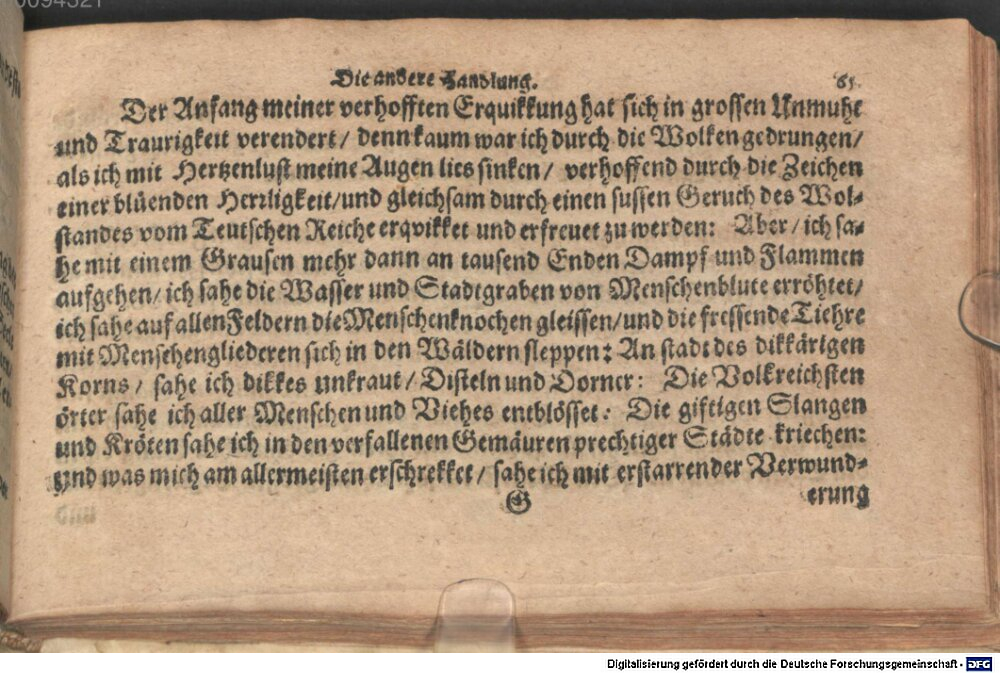 0094521
Die andere Handlung. 65.
Der Anfang meiner verhofften Erquikkung hat sich in grossen Unmuht
und Traurigkeit verendert/ denn kaum war ich durch die Wolken gedrungen/
als ich mit Hertzenlust meine Augen lies sinken/ verhoffend durch die Zeichen
einer blüenden Herrligkeit/und gleichsam durch einen sussen Geruch des Wol-
standes vom Teutschen Reiche erqvikket und erfreuet zu werden: Aber/ ich sa-
he mit einem Grausen mehr dann an tausend Enden Dampf und Flammen
aufgehen/ ich sahe die Wasser und Stadtgraben von Menschenblute erröhtet/
ich sahe auf allen Feldern die Menschenknochen gleissen/und die fressende Tiehre
mit Menschengliederen sich in den Wäldern sleppen: An stadt des dikkärigen
Korns/ sahe ich dikkes unkraut/ Disteln und Dorner: Die Volkreichsten
örter sahe ich aller Menschen und Viehes entblösset: Die giftigen Slangen
und Kröten sahe ich in den verfallenen Gemäuren prechtiger Städte kriechen:
und was mich am allermeisten erschrekket/ sahe ich mit erstarrender Verwund-
G erung
Digitalisierung gefördert durch die Deutsche Forschungsgemeinschaft - DFG